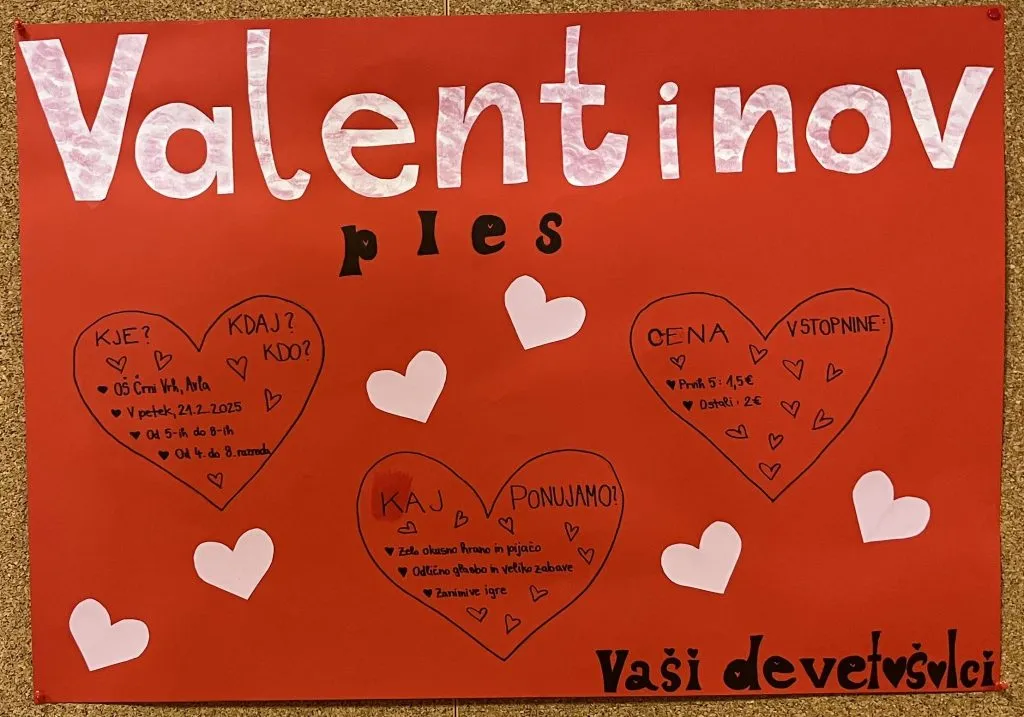 Valentinov
ples
KJE? KDAJ?
KDO?
OŠ Črni Vrh, Avla
V petek, 21.2.2025
Od 5-ih do 8-ih
Od 4. do 8. razreda
CENA VSTOPNINE:
Prvih 5: 1,5€
Ostali: 2€
KAJ PONUJAMO?
Zelo okusno hrano in pijačo
Odlično glasbo in veliko zabave
Zanimive igre
Vaši devetošolci